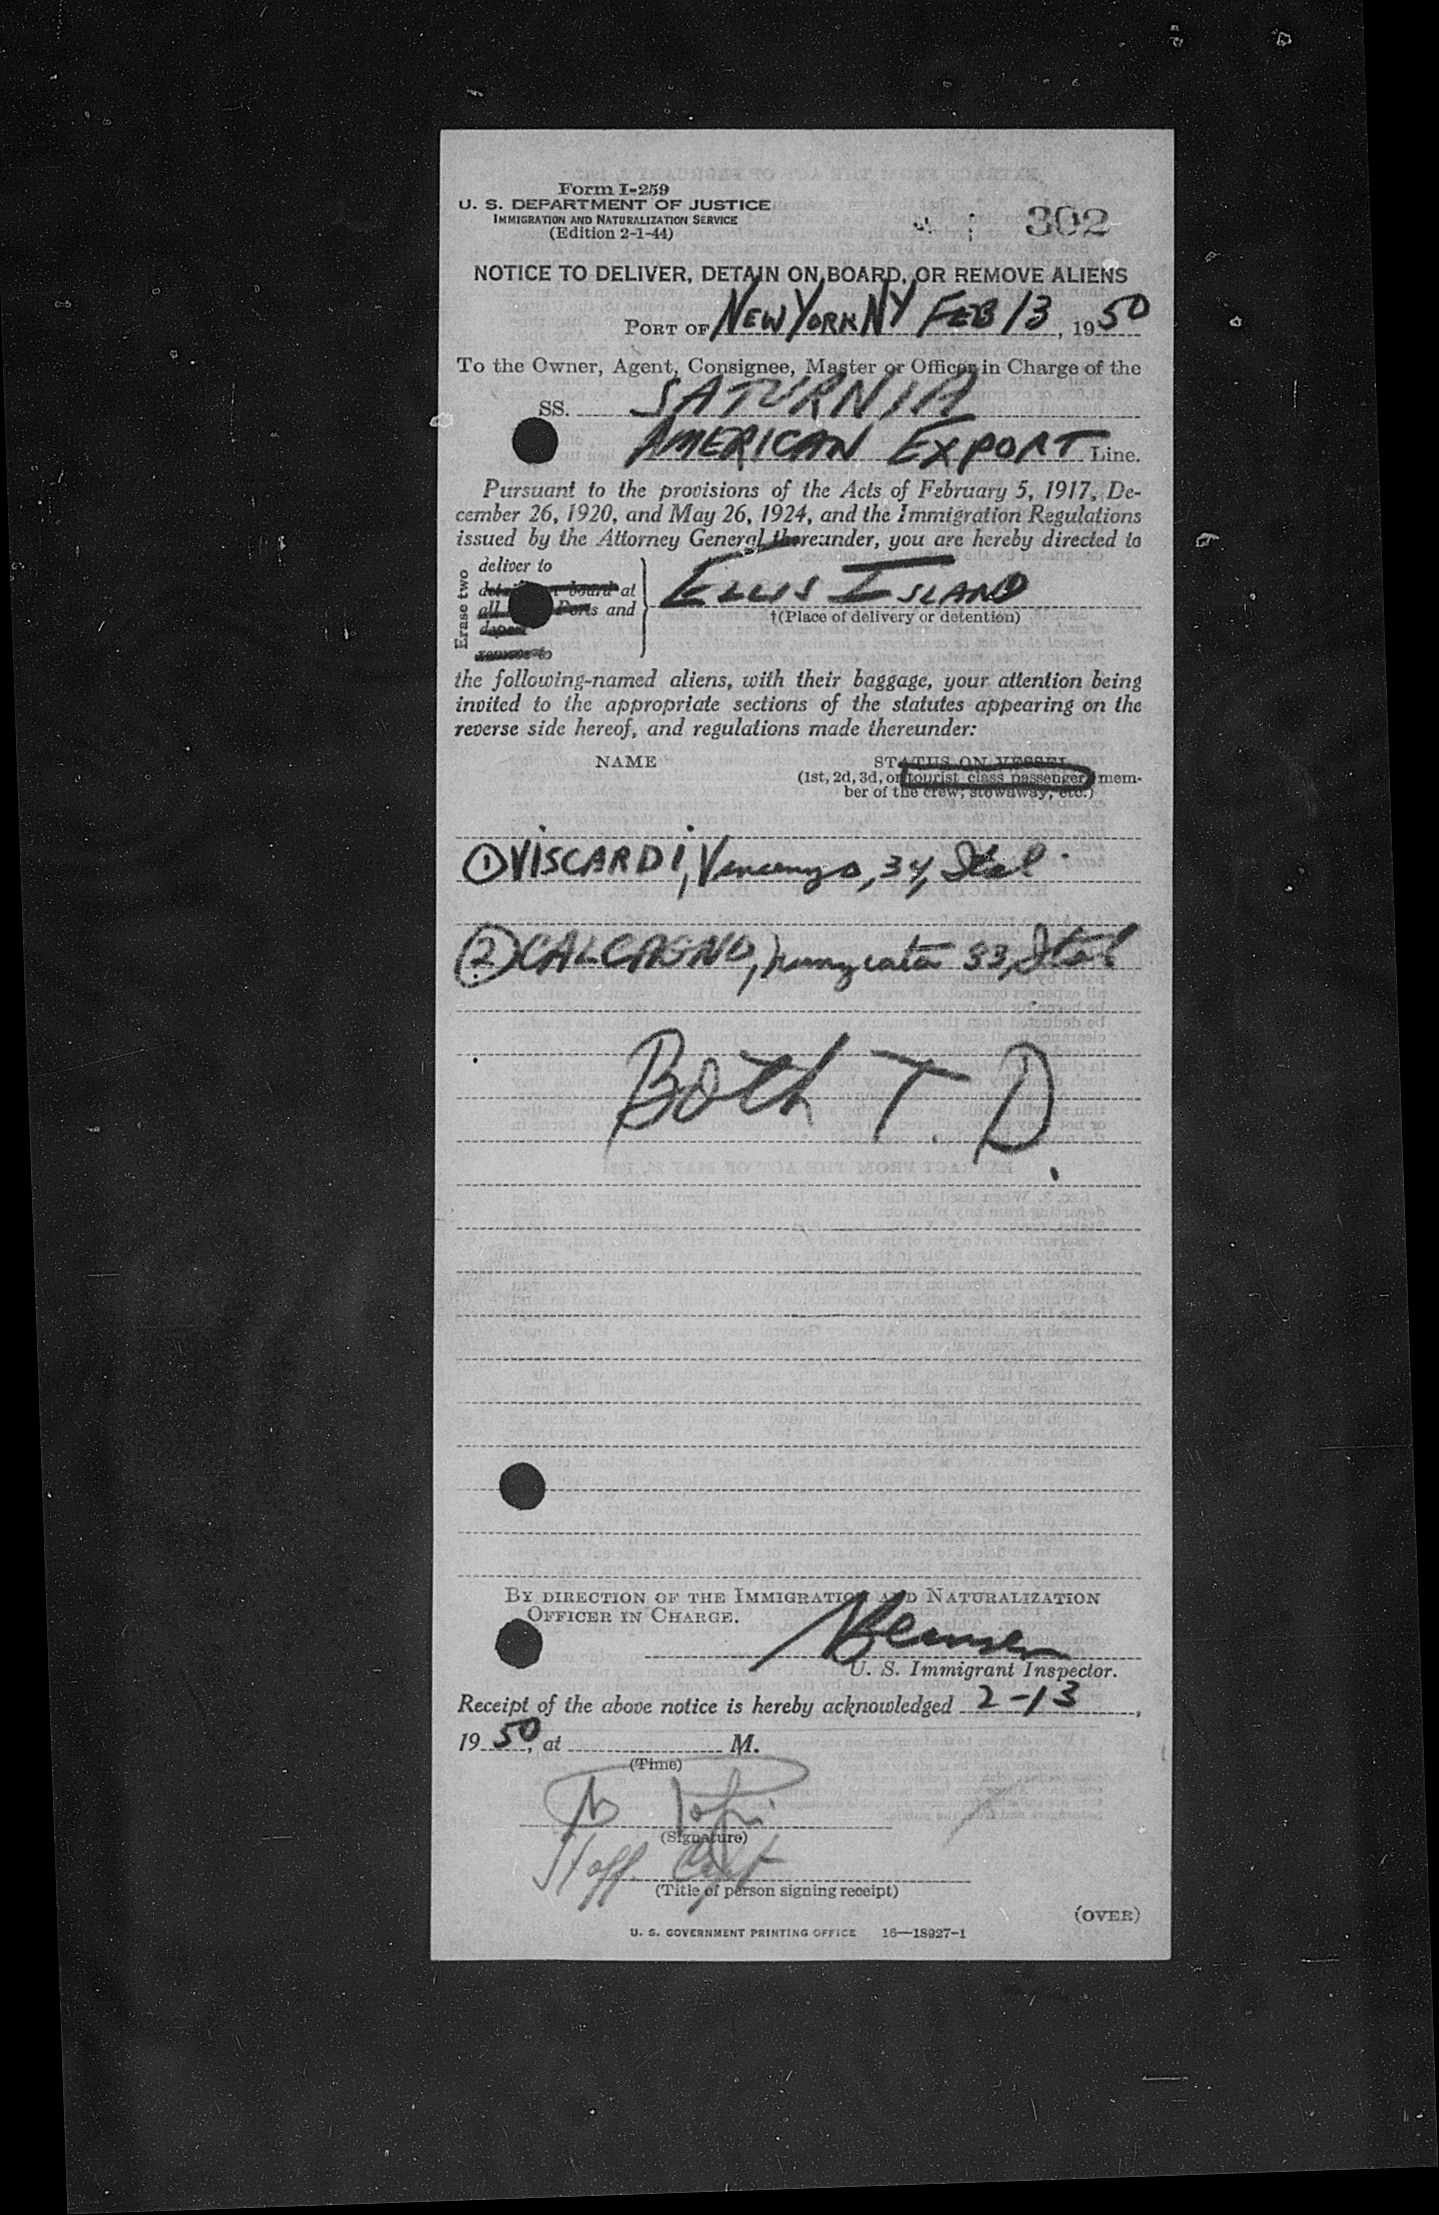 Form I-259
U. S. DEPARTMENT OF JUSTICE
IMMIGRATION AND NATURALIZATION SERVICE
(Edition 2-1-44)
302
NOTICE TO DELIVER, DETAIN ON BOARD, OR REMOVE ALIENS
PORT OF NEW YORK NY FEB 13, 1950
To the Owner, Agent, Consignee, Master or Officer in Charge of the
SS. SATURNIA
AMERICAN EXPORT Line.
Pursuant to the provisions of the Acts of February 5, 1917, De-
cember 26, 1920, and May 26, 1924, and the Immigration Regulations
issued by the Attorney General thereunder, you are hereby directed to
Erase two
deliver to
board at
all Ports and
remove to
ELLIS ISLAND
†(Place of delivery or detention)
the following-named aliens, with their baggage, your attention being
invited to the appropriate sections of the statutes appearing on the
reverse side hereof, and regulations made thereunder:
NAME STATUS ON VESSEL
(1st, 2d, 3d, or tourist class passenger, mem-
ber of the crew, stowaway, etc.)
1 VISCARDI, Vincenzo, 34, Ital.
2 CALCAGNO, 33, Ital
Both T. D.
BY DIRECTION OF THE IMMIGRATION AND NATURALIZATION
OFFICER IN CHARGE.
U. S. Immigrant Inspector.
Receipt of the above notice is hereby acknowledged 2-13,
1950, at M.
(Time)
(Signature)
Staff Capt
(Title of person signing receipt)
(OVER)
U. S. GOVERNMENT PRINTING OFFICE 16—18927-1